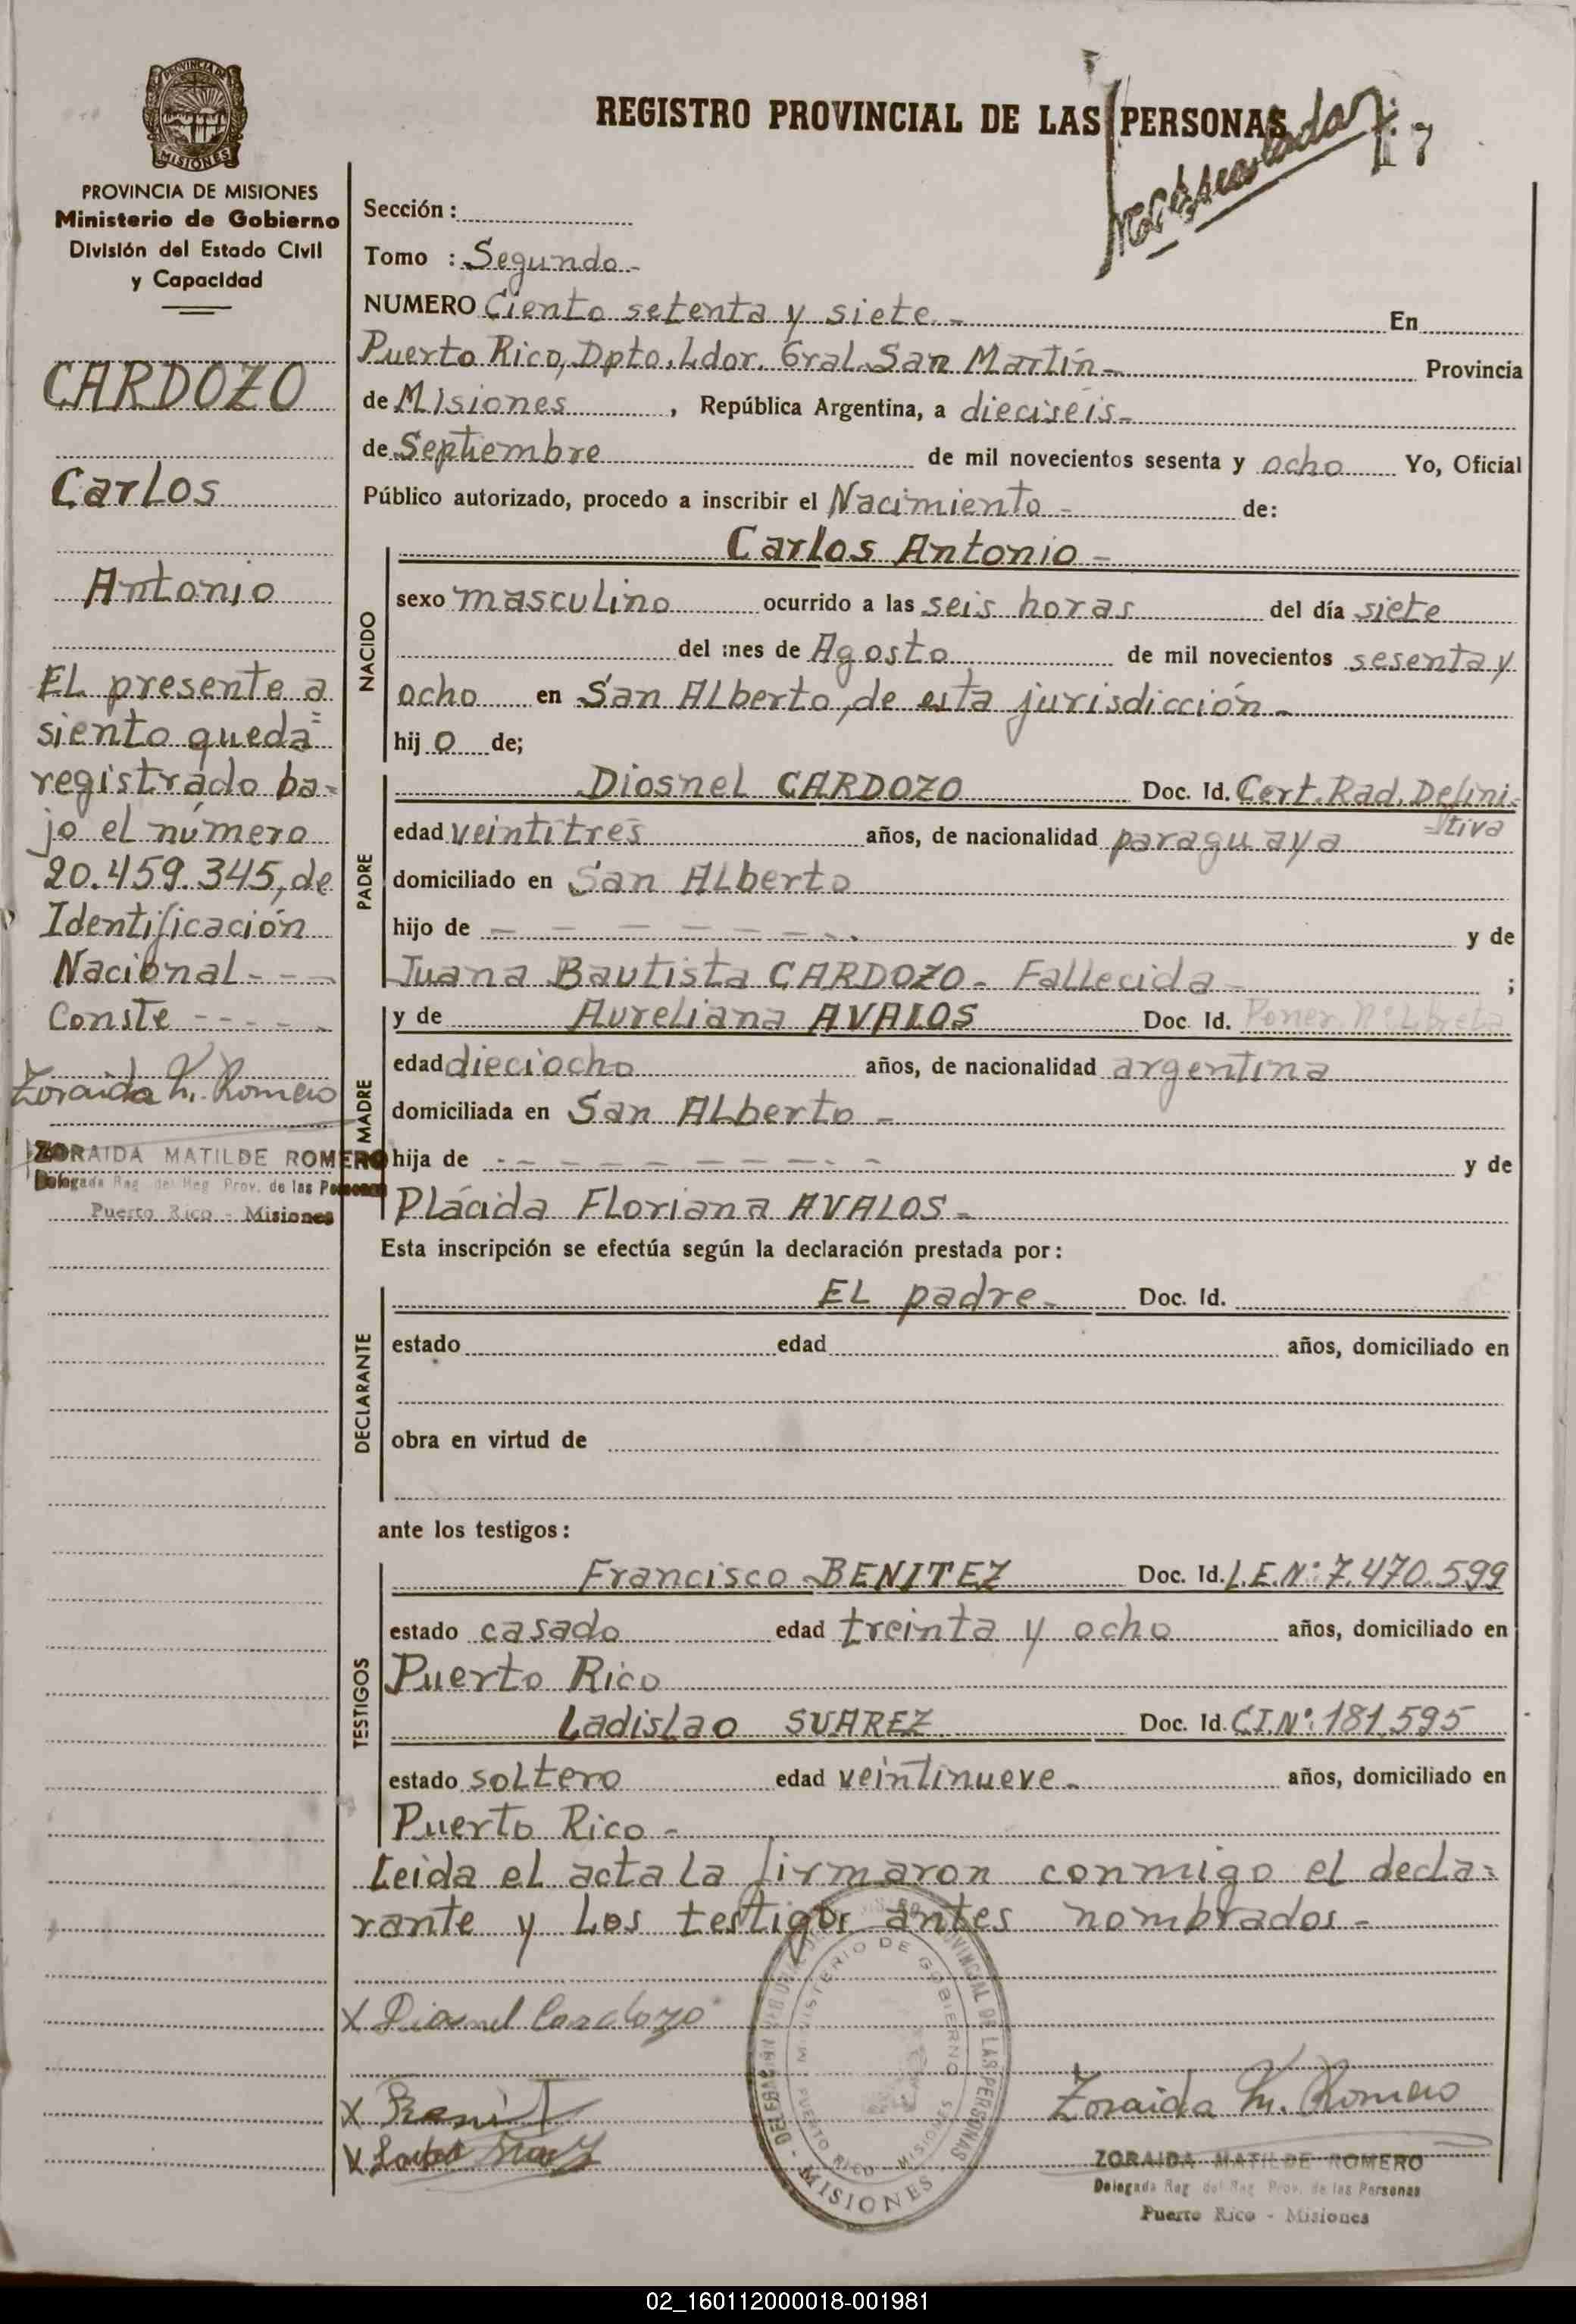 REGISTRO PROVINCIAL DE LAS PERSONAS
7
PROVINCIA DE
MISIONES
PROVINCIA DE MISIONES
Ministerio de Gobierno
División del Estado Civil
y Capacidad
CARDOZO
Carlos
Antonio
EL presente a
siento queda
registrado ba=
jo el número
20.459.345, de
Identificación
Nacional - - -
Conste - - - - -
Zoraida M. Romero
ZORAIDA MATILDE ROMERO
Delegada Reg. del Reg. Prov. de las Personas
Puerto Rico - Misiones
Sección :
Tomo : Segundo -
NUMERO Ciento setenta y siete. - En
Puerto Rico, Dpto. Ldor. Gral. San Martín - Provincia
de Misiones , República Argentina, a dieciséis -
de Septiembre de mil novecientos sesenta y ocho Yo, Oficial
Público autorizado, procedo a inscribir el Nacimiento - de:
NACIDO
Carlos Antonio -
sexo masculino ocurrido a las seis horas del día siete
del mes de Agosto de mil novecientos sesenta y
ocho en San Alberto, de esta jurisdicción -
hij o de;
PADRE
Diosnel CARDOZO Doc. Id. Cert. Rad. Defini=
tiva
edad veintitres años, de nacionalidad paraguaya
domiciliado en San Alberto
hijo de - - - - - - - - y de
Juana Bautista CARDOZO - Fallecida - ;
MADRE
y de Aureliana AVALOS Doc. Id. Poner Nº Libreta
edad dieciocho años, de nacionalidad argentina
domiciliada en San Alberto -
hija de - - - - - - - - - y de
Plácida Floriana AVALOS -
Esta inscripción se efectúa según la declaración prestada por:
DECLARANTE
EL padre - Doc. Id.
estado edad años, domiciliado en
obra en virtud de
ante los testigos:
TESTIGOS
Francisco BENITEZ Doc. Id. L.E.Nº: 7.470.599
estado casado edad treinta y ocho años, domiciliado en
Puerto Rico
Ladislao SUAREZ Doc. Id. C.I.Nº: 181.595
estado soltero edad veintinueve - años, domiciliado en
Puerto Rico -
Leida el acta la firmaron conmigo el decla=
rante y los testigos antes nombrados -
X Diosnel Cardozo
X
X
MINISTERIO DE GOBIERNO
PUERTO RICO - MISIONES
PROVINCIAL DE LAS PERSONAS
MISIONES
Zoraida M. Romero
ZORAIDA MATILDE ROMERO
Delegada Reg. del Reg. Prov. de las Personas
Puerto Rico - Misiones
02_160112000018-001981